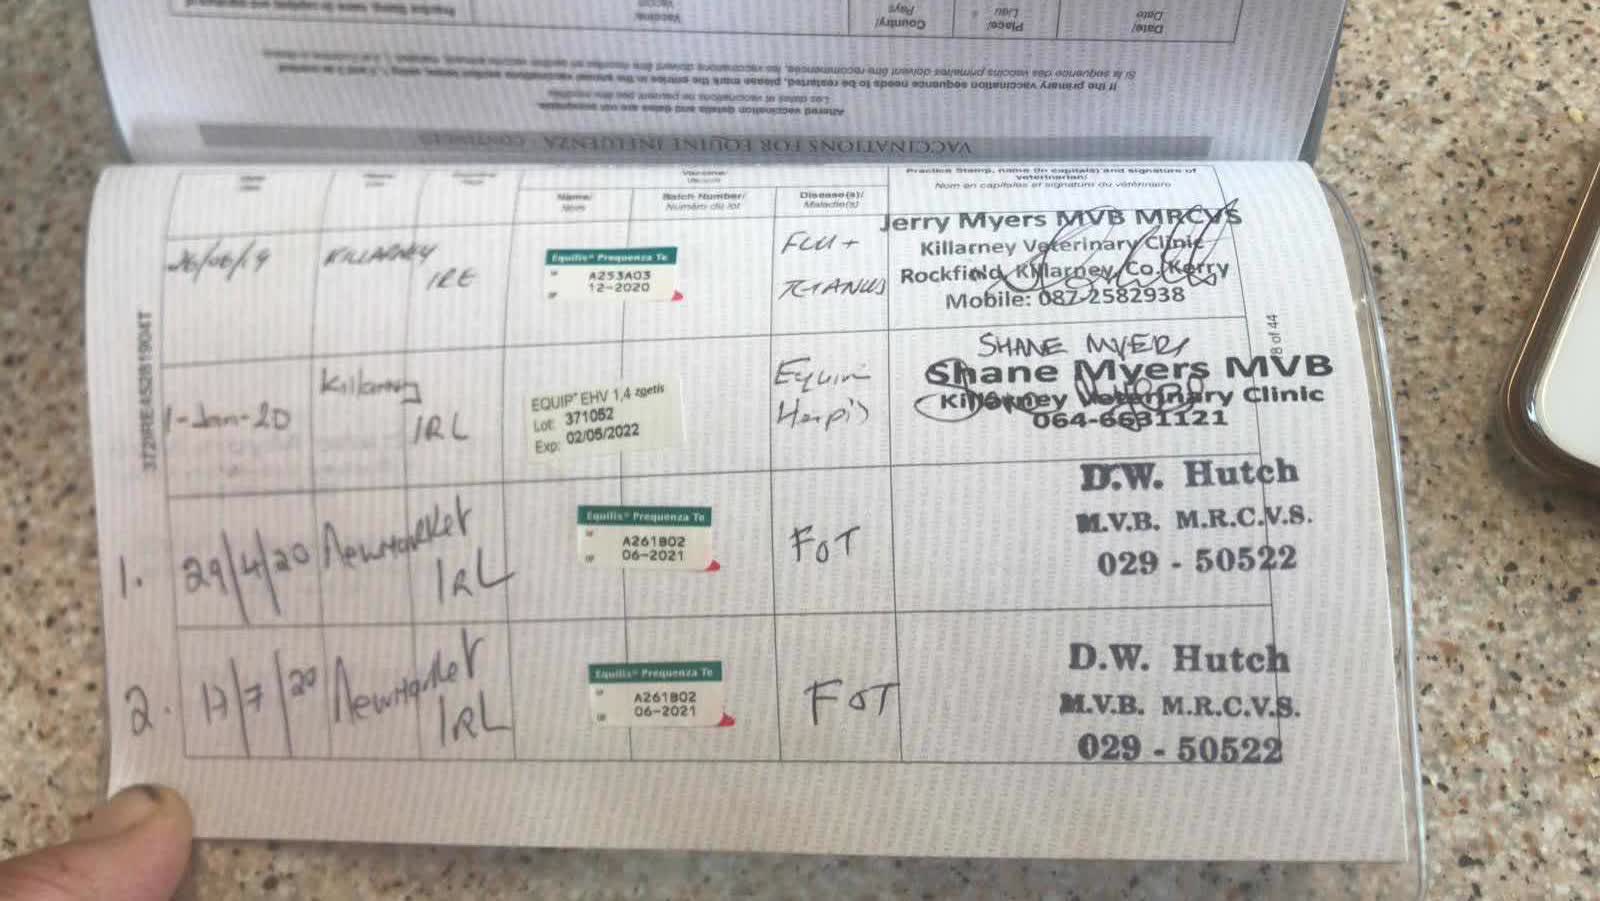 Date/ Place/ Country/ Vaccine/
Date Lieu Pays Vaccin
Si la séquence des vaccins primaires doivent être recommencés, les vaccinations doivent être
If the primary vaccination sequence needs to be restarted, please mark the entries in the annual vaccination section below, with
Les dates et vaccinations ne peuvent pas être modifiés
Altered vaccination details and dates are not acceptable.
VACCINATIONS FOR EQUINE INFLUENZA CONTINUED
Vaccine/
Vaccin
Practice Stamp, name (in capitals) and signature of
veterinarian/
Nom en capitales et signature du vétérinaire
Name/ Batch Number/ Disease(s)/
Nom Numéro du lot Maladie(s)
26/06/19 KILLARNEY IRE
Equilis® Prequenza Te
A253A03
12-2020
FLU +
TETANUS
Jerry Myers MVB MRCVS
Killarney Veterinary Clinic
Rockfield, Killarney, Co. Kerry
Mobile: 087-2582938
372IRE45281904T
8 of 44
1-Jan-20 Killarney IRL
EQUIP® EHV 1,4 zoetis
Lot: 371052
Exp: 02/05/2022
Equine
Herpis
SHANE MYERS
Shane Myers MVB
Killarney Veterinary Clinic
064-6631121
1. 29/4/20 Newmarket IRL
Equilis® Prequenza Te
A261B02
06-2021
F&T
D.W. Hutch
M.V.B. M.R.C.V.S.
029 - 50522
2. 17/7/20 Newmarket IRL
Equilis® Prequenza Te
A261B02
06-2021
F&T
D.W. Hutch
M.V.B. M.R.C.V.S.
029 - 50522